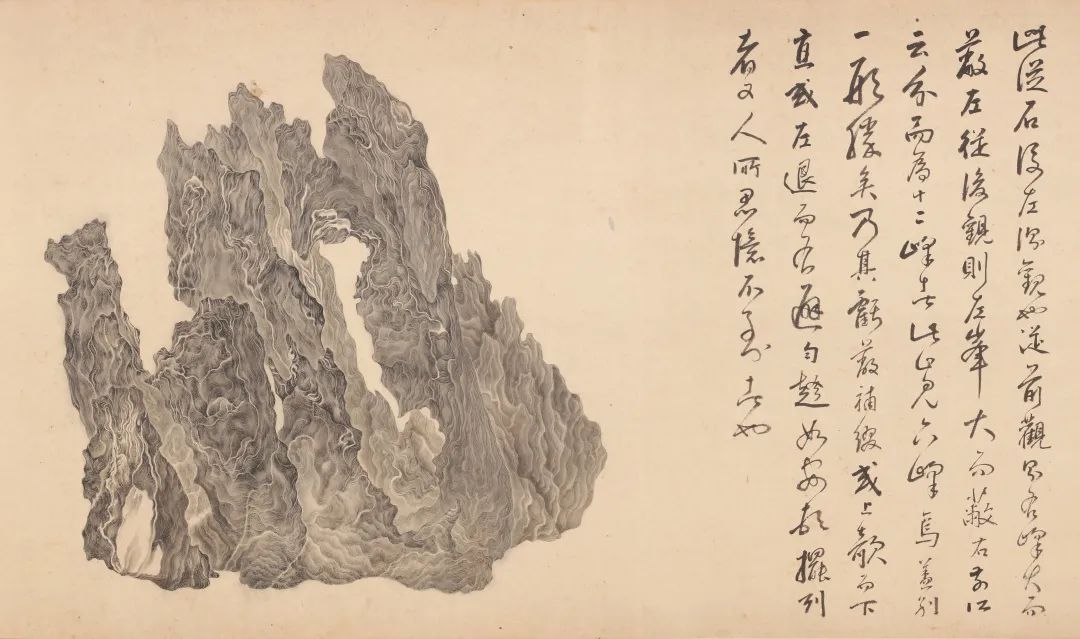 此從石後左側觀也從前觀則右峰大而
蔽左從後觀則左峯大而蔽右前所
云分而為十二峰者此止見六峰焉蓋別
一形勝矣乃其虧蔽補綴或上欹而下
直或左退而右避勻趁如安頓擺列
者又人所思憶不到者也